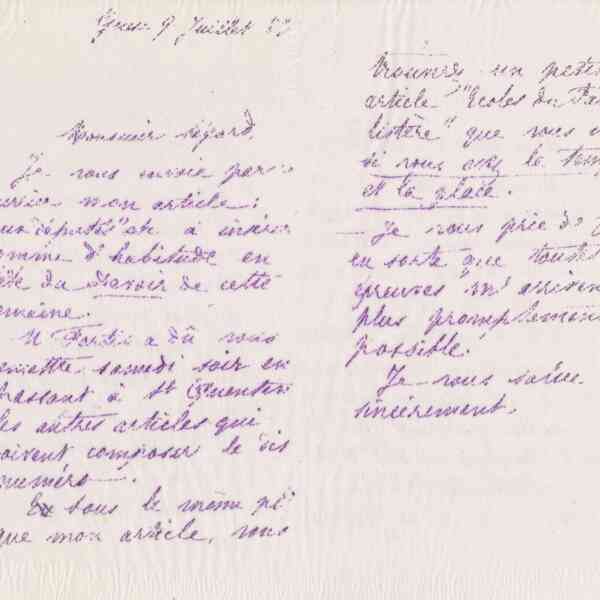 9 Juillet
Monsieur Régard,
Je vous envoie par
mon article :
à insérer
comme d'habitude en
tête du Devoir de cette
semaine.
M. a dû vous
remettre samedi soir en
passant à St Quentin
les autres articles qui
doivent composer le dit
numéro.
sous le même pli
que mon article, vous
trouverez un petit
article "Ecoles du Fa
listère" que vous
si vous avez le temps
et la place.
Je vous prie de
en sorte que toutes
épreuves m'arrivent
plus promptement
possible.
Je vous salue
sincèrement.